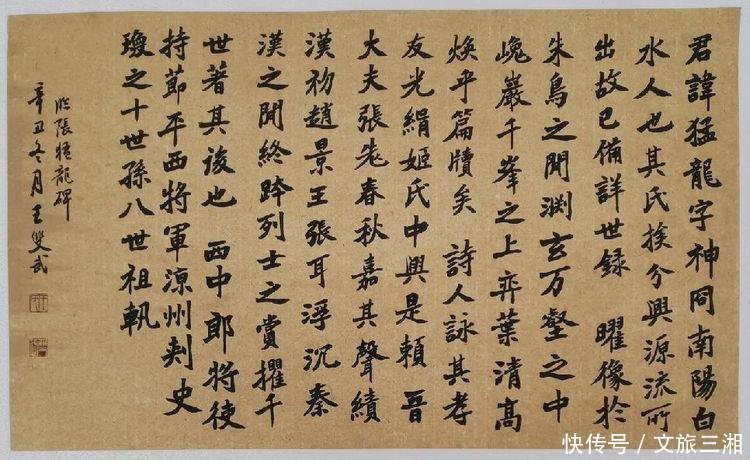 君諱猛龍字神冏南陽白
水人也其氏族分興源流所
出故已備詳世録 曜像於
朱鳥之閒淵玄万壑之中
巉巖千峯之上弈葉清高
焕乎篇牘矣 詩人詠其孝
友光緝姬氏中興是賴 晉
大夫張老春秋嘉其聲績
漢初趙景王張耳浮沉秦
漢之閒終跨列士之賞擢千
世著其後也 西中郎将使
持節平西将軍涼州刾史
瓊之十世孫八世祖軌
臨張猛龍碑
辛丑冬月王雙武
快传号／文旅三湘